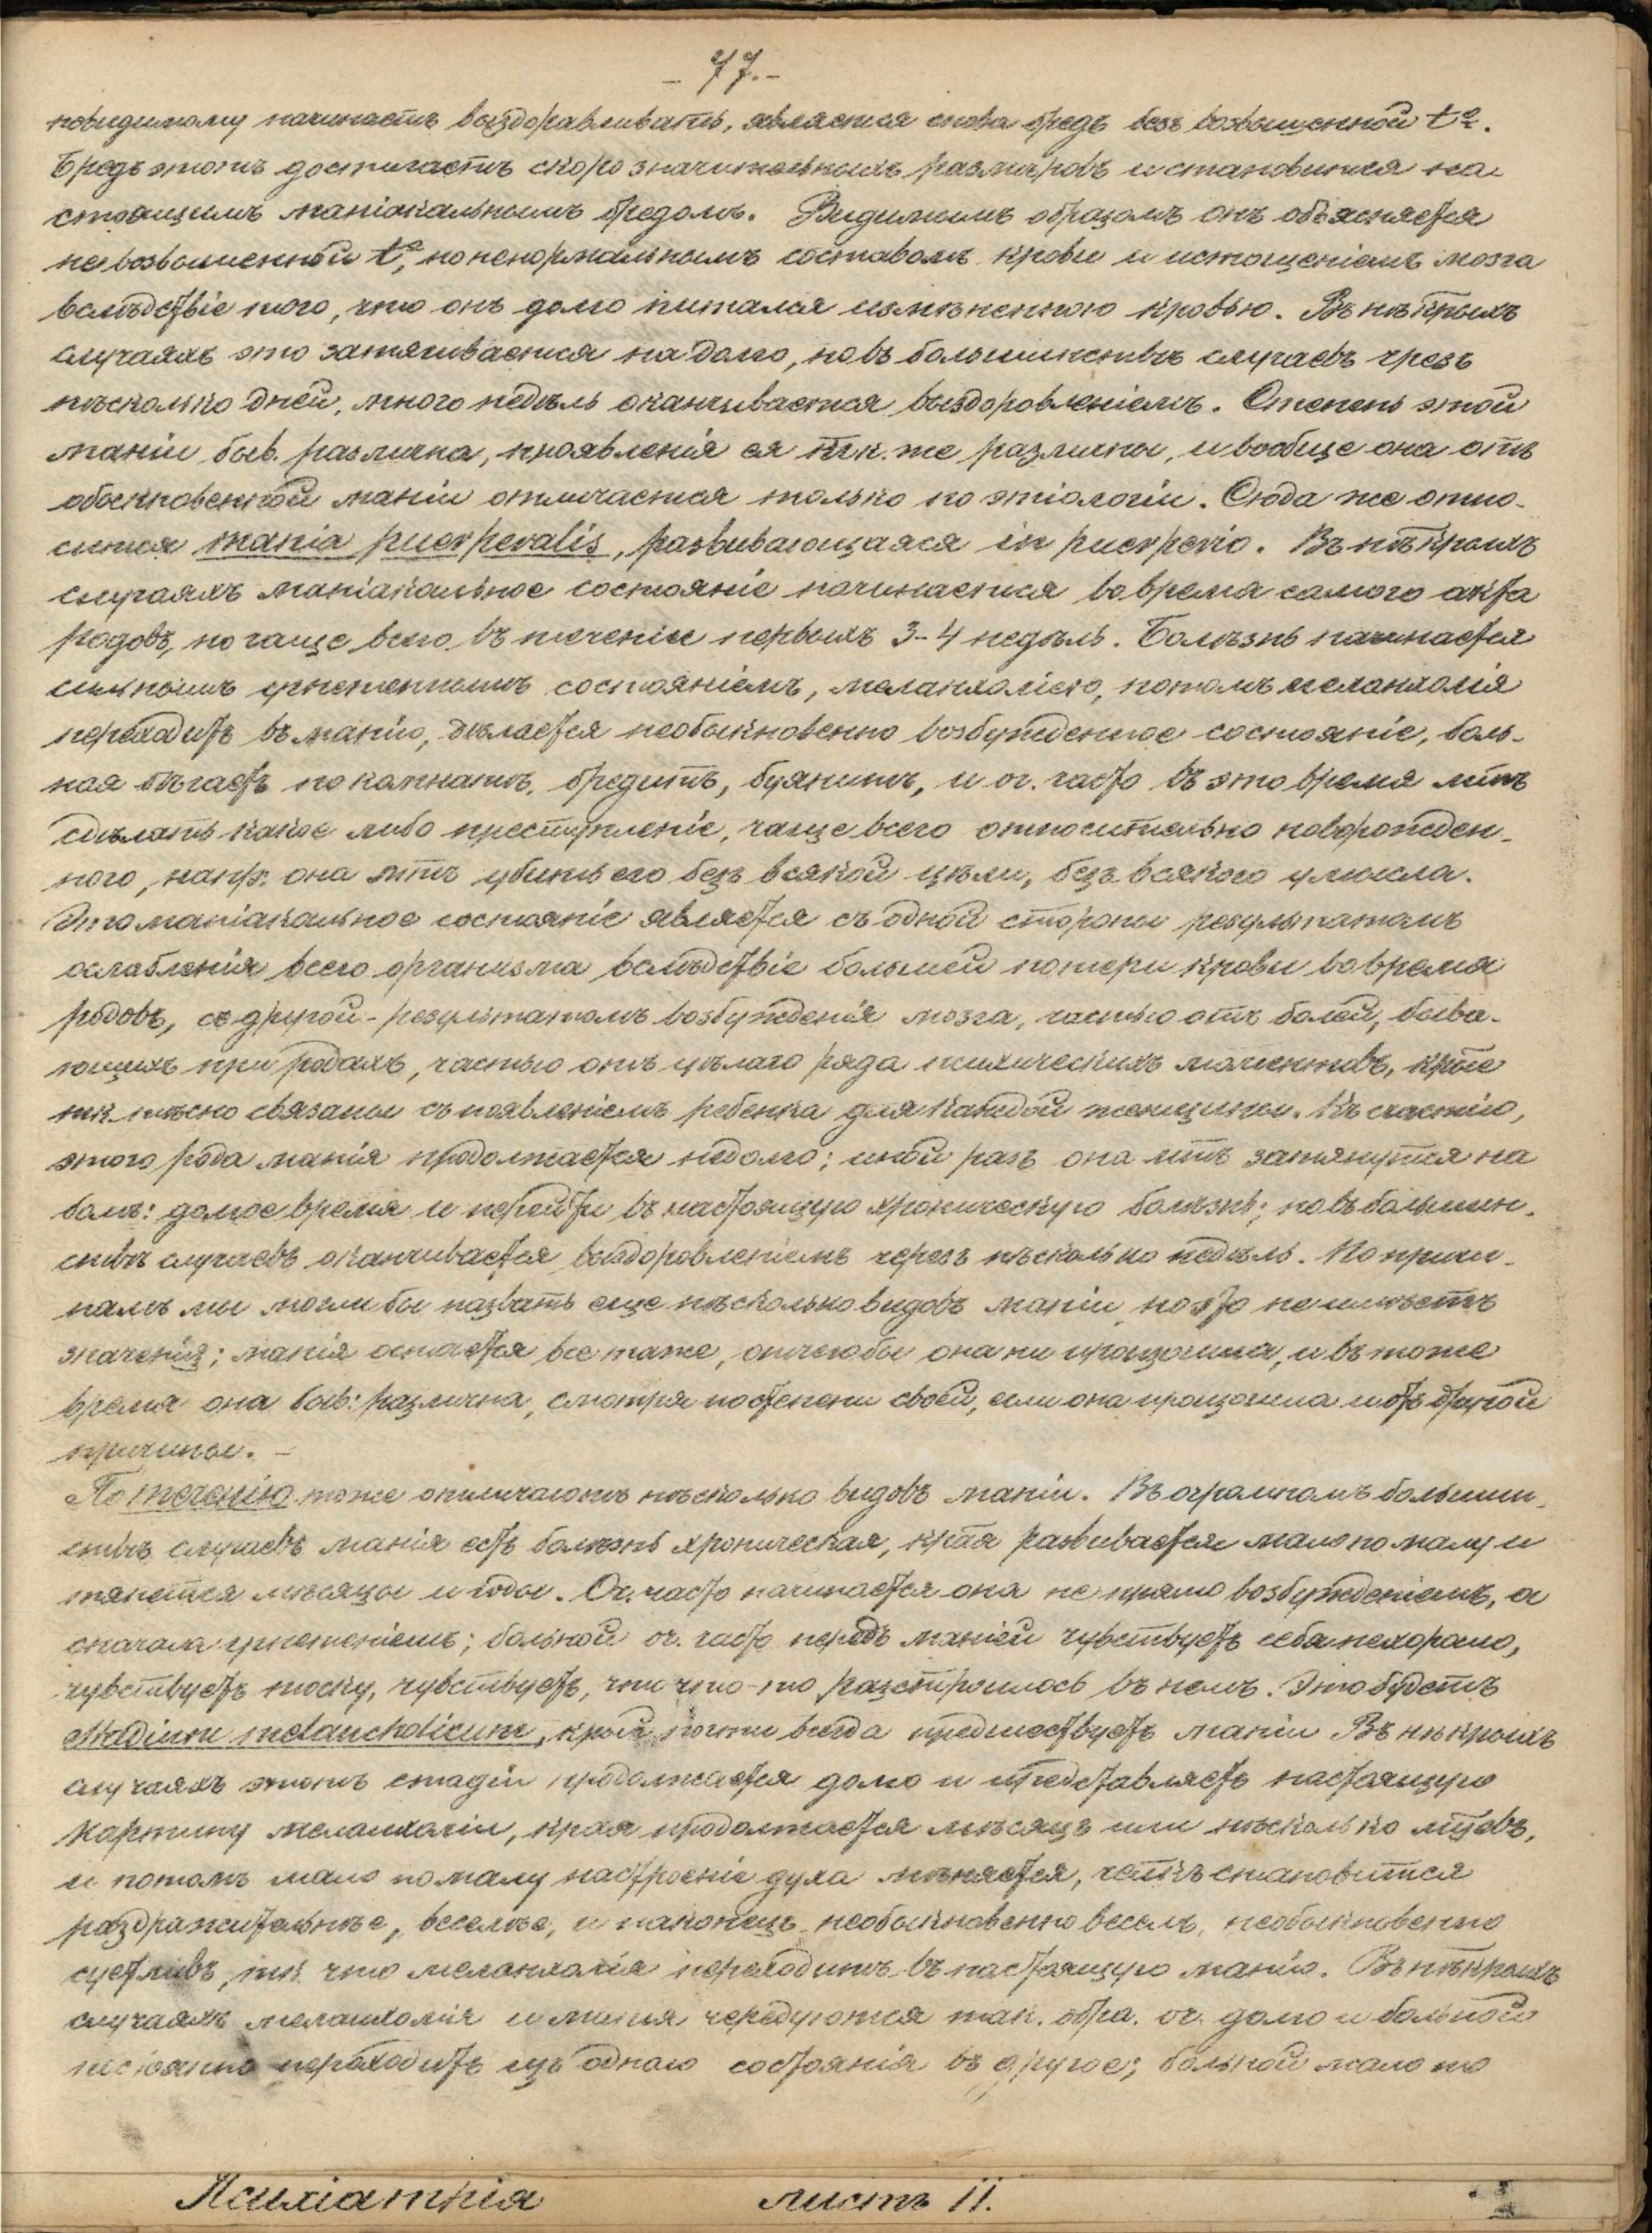 - 77. -
повидимому начинаетъ выздоравливать, является снова бредъ безъ возвышенной tº.
Бредъ этотъ достигаетъ скоро значительныхъ размѣровъ и становится на-
стоящимъ маніакальнымъ бредомъ. Видимымъ образомъ онъ объясняется
не возвышенной tº, но ненормальнымъ составомъ крови и истощеніемъ мозга
вслѣдствіе того, что онъ долго питался измѣненною кровью. Въ нѣкрыхъ
случаяхъ это затягивается на долго, но въ большинствѣ случаевъ чрезъ
нѣсколько дней, много недѣль оканчивается выздоровленіемъ. Степень этой
маніи быв. различна, проявленія ея тк. же различны, и вообще она отъ
обыкновенной маніи отличается только по этіологіи. Сюда же отно-
сится mania puerperalis, развивающаяся in puerperio. Въ нѣкрыхъ
случаяхъ маніакальное состояніе начинается во время самого акта
родовъ, но чаще всего въ теченіи первыхъ 3-4 недѣль. Болѣзнь начинается
сильнымъ угнетеннымъ состояніемъ, меланхоліею, потомъ меланхолія
переходитъ въ манію, дѣлается необыкновенно возбужденное состояніе, боль-
ная бѣгаетъ по комнатѣ, бредитъ, буянитъ, и оч. часто въ это время мтъ
сдѣлать какое либо преступленіе, чаще всего относительно новорожден-
ного, напр. она мтъ убить его безъ всякой цѣли, безъ всякого умысла.
Это маніакальное состояніе является съ одной стороны результатомъ
ослабленія всего организма вслѣдствіе большей потери крови во время
родовъ, съ другой - результатомъ возбужденія мозга, частью отъ болей, быва-
ющихъ при родахъ, частью отъ цѣлаго ряда психическихъ моментовъ, крые
тк. тѣсно связаны съ появленіемъ ребенка для каждой женщины. Къ счастію,
этого рода манія продолжается недолго; иной разъ она мтъ затянутся на
болѣ: долгое время и перейти въ настоящую хроническую болѣзнь; но въ большин-
ствѣ случаевъ оканчивается выздоровленіемъ черезъ нѣсколько недѣль. По причи-
намъ мы могли бы назвать еще нѣсколько видовъ маніи, но это не имѣетъ
значенія; манія остается все таже, отчего бы она ни произошла, и въ тоже
время она быв: различна, смотря по степени своей, если она произошла и отъ другой
причины. -
По теченію тоже отличаютъ нѣсколько видовъ маніи. Въ огромномъ большин-
ствѣ случаевъ манія есть болѣзнь хроническая, края развивается мало по малу и
тянется мѣсяцы и годы. Оч. часто начинается она не прямо возбужденіемъ, а
сначала угнетеніемъ; больной оч. часто передъ маніей чувствуетъ себя нехорошо,
чувствуетъ тоску, чувствуетъ, что что-то разстроилось въ немъ. Это будетъ
stadium melancholicum, крый почти всегда предшествуетъ маніи. Въ нѣкрыхъ
случаяхъ этотъ стадій продолжается долго и представляетъ настоящую
картину меланхоліи, края продолжается мѣсяцъ или нѣсколько мцевъ,
и потомъ мало по малу настроеніе духа мѣняется, становится
раздражительнѣе, веселѣе, и наконецъ необыкновенно веселъ, необыкновенно
суетливъ, тк. что меланхолія переходитъ въ настоящую манію. Въ нѣкрыхъ
случаяхъ меланхолія и манія чередуются так. обра. оч. долго и больной
постоянно переходитъ изъ одного состоянія въ другое; больной мало по
Психіатрія листъ 11.